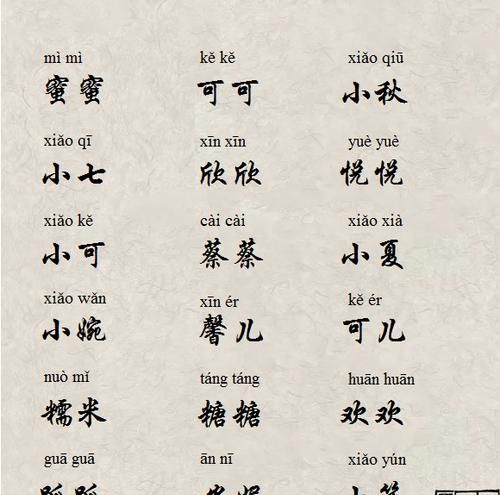 mì mì kě kě xiǎo qiū
蜜蜜 可可 小秋
xiǎo qī xīn xīn yuè yuè
小七 欣欣 悦悦
xiǎo kě cài cài xiǎo xià
小可 蔡蔡 小夏
xiǎo wǎn xīn ér kě ér
小婉 馨儿 可儿
nuò mǐ táng táng huān huān
糯米 糖糖 欢欢
guā guā ān nī xiǎo yún